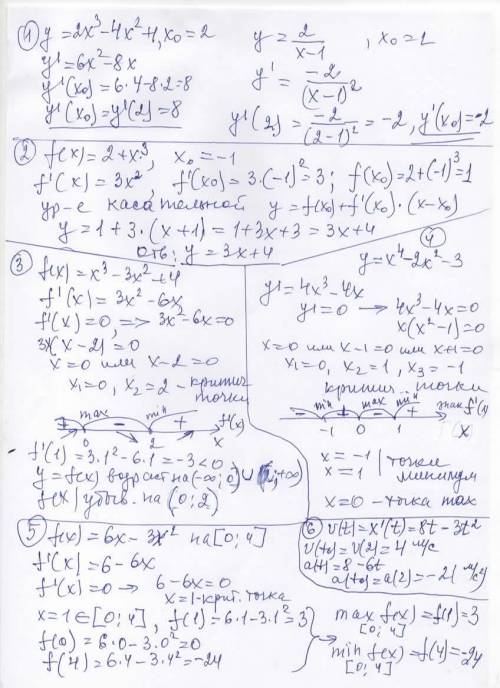 ① y = 2x³-4x²+1, x₀ = 2
y' = 6x²-8x
y'(x₀) = 6·4-8·2 = 8
y'(x₀) = y'(2) = 8
y = 2/(x-1), x₀ = 2
y' = -2/(x-1)²
y'(2) = -2/(2-1)² = -2, y'(x₀) = -2
② f(x) = 2+x³, x₀ = -1
f'(x) = 3x², f'(x₀) = 3·(-1)² = 3; f(x₀) = 2+(-1)³ = 1
ур-е касательной y = f(x₀)+f'(x₀)·(x-x₀)
y = 1+3·(x+1) = 1+3x+3 = 3x+4
Отв: y = 3x+4
③ f(x) = x³-3x²+4
f'(x) = 3x²-6x
f'(x) = 0, => 3x²-6x = 0
3x(x-2) = 0
x = 0 или x-2 = 0
x₁ = 0, x₂ = 2 - критич
точки
+ max - min + f'(x)
0 2 x
f'(1) = 3·1²-6·1 = -3 < 0
y = f(x) возраст на (-∞; 0) ∪ (2; +∞)
f(x) убыв. на (0; 2)
④
y = x⁴-2x²-3
y' = 4x³-4x
y' = 0 → 4x³-4x = 0
x(x²-1) = 0
x = 0 или x-1 = 0 или x+1 = 0
x₁ = 0, x₂ = 1, x₃ = -1
критич точки
- min + max - min + знак f'(x)
-1 0 1 x
x = -1 | точки
x = 1 | минимум
x = 0 - точка max
⑤ f(x) = 6x-3x² на [0; 4]
f'(x) = 6-6x
f'(x) = 0 → 6-6x = 0
x = 1 - крит. точка
x = 1 ∈ [0; 4], f(1) = 6·1-3·1² = 3
f(0) = 6·0-3·0² = 0
f(4) = 6·4-3·4² = -24
max f(x) = f(1) = 3
[0; 4]
min f(x) = f(4) = -24
[0; 4]
⑥ v(t) = x'(t) = 8t-3t²
v(t₀) = v(2) = 4 м/с
a(t) = 8-6t